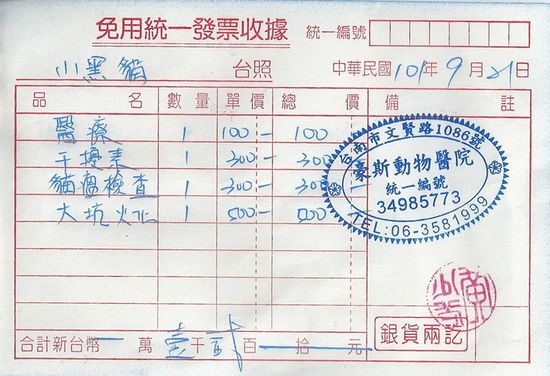 免用統一發票收據 統一編號
小黑貓 台照 中華民國101年9月21日
品名 數量 單價 總價 備註
醫療 1 100- 100
干擾素 1 300- 300
貓瘟檢查 1 300- 300
大坑火化 1 500- 500
台南市文賢路1086號
豪斯動物醫院
統一編號
34985773
TEL:06-3581999
合計新台幣 萬 壹千 貳百 拾 元
銀貨兩訖